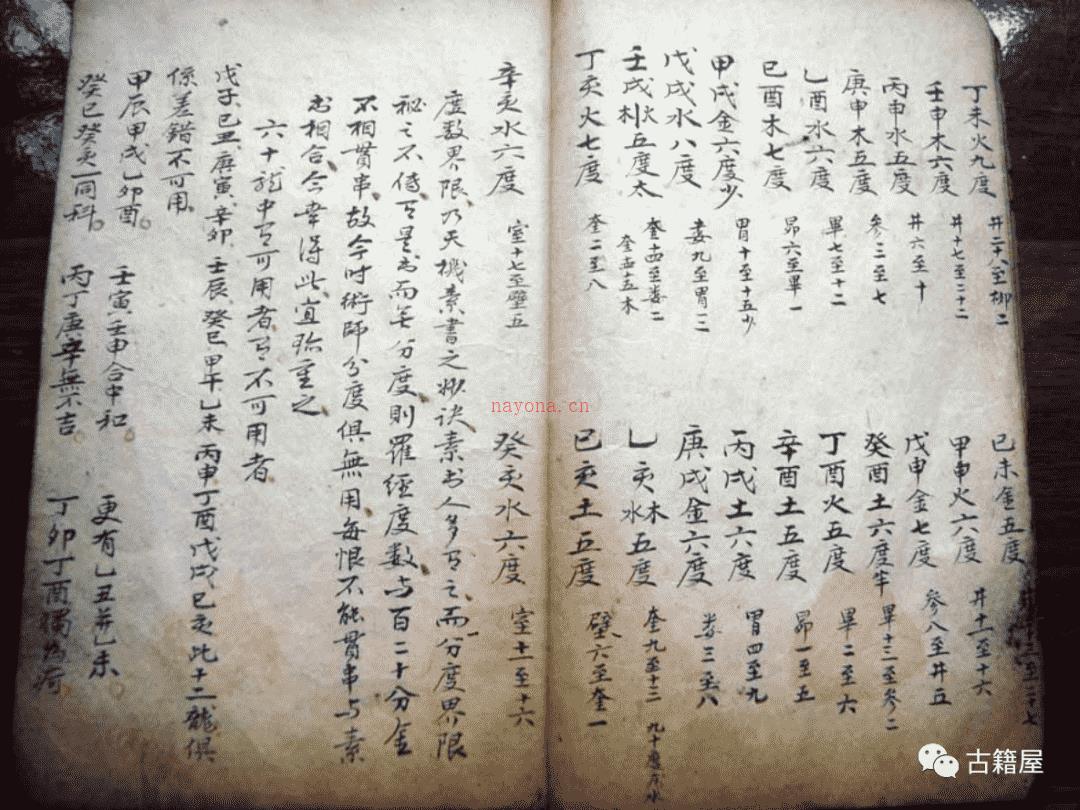 丁未火九度 井二十八至柳二 己未金五度
壬申木六度 井十七至二十二 甲申火六度 井十一至十六
丙申水五度 井六至十 戊申金七度 參八至井五
庚申木五度 參三至七 癸酉土六度半 畢十三至參二
乙酉水六度 畢七至十二 丁酉火五度 畢二至六
己酉木七度 昴六至畢一 辛酉土五度 昴一至五
甲戌金六度少 胃十至十五少 丙戌土六度 胃四至九
戊戌水八度 婁九至胃三 庚戌金六度 婁三至八
壬戌水五度太 奎十四至婁二 乙亥木水五度 奎九至十三
丁亥火七度 奎二至八 己亥土五度 壁六至奎一
辛亥水六度 室十七至壁五 癸亥水六度 室十一至十六
度数界限乃天機素書之妙訣素书人多有之而分度界限
秘之不傳有是书而無分度則羅經度数与百二十分金
不相貫串故今时術師分度俱無用每恨不能貫串与素
书相合今幸得此宜珍重之
六十龍中有可用者有不可用者
戊子己丑庚寅辛卯壬辰癸巳甲午乙未丙申丁酉戊戌己亥此十二龍俱
係差錯不可用
甲辰甲戌乙卯酉 壬寅壬申合中和 更有乙丑并乙未
癸巳癸亥一同科 丙丁庚辛無不吉 丁卯丁酉獨為
nayona.cn
古籍屋